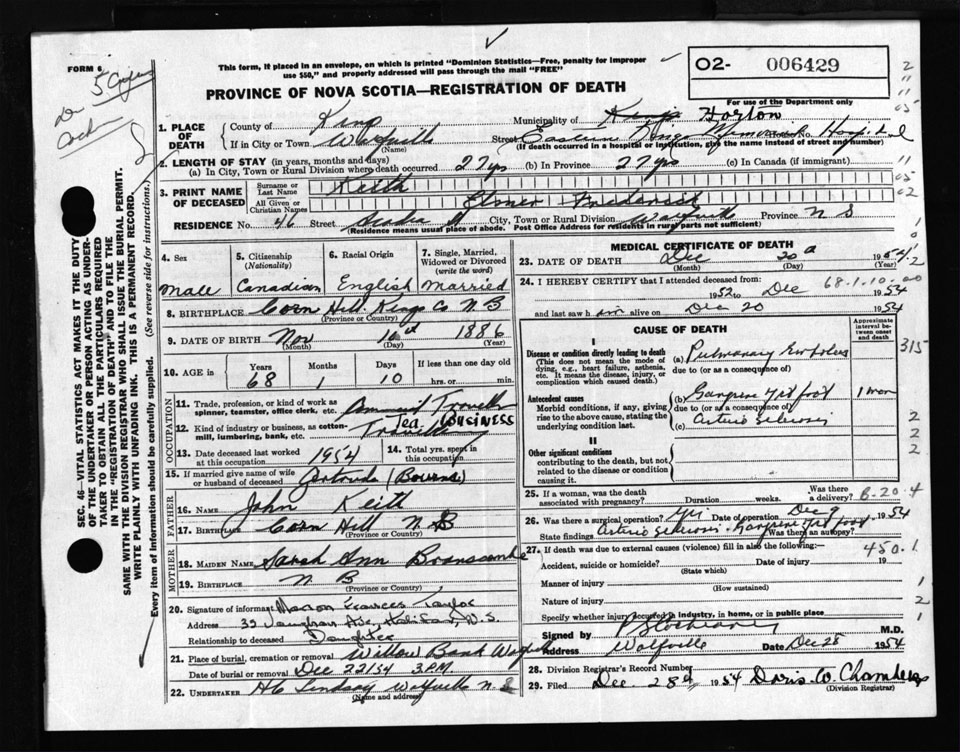 FORM 6
5 Copies
This form, if placed in an envelope, on which is printed "Dominion Statistics—Free, penalty for improper
use $50," and properly addressed will pass through the mail "FREE"
02- 006429
For use of the Department only
PROVINCE OF NOVA SCOTIA—REGISTRATION OF DEATH
1. PLACE OF DEATH
County of Kings
Municipality of Kings Horton
If in City or Town Wolfville (Name)
Street Eastern Kings Memorial Hospital
(If death occurred in a hospital or institution, give the name instead of street and number)
2. LENGTH OF STAY (in years, months and days)
(a) In City, Town or Rural Division where death occurred 27 yrs (b) In Province 27 yrs (c) In Canada (if immigrant)
3. PRINT NAME OF DECEASED
Surname or Last Name Keith
All Given or Christian Names Elmer Frederick
RESIDENCE No. 46 Street Acadia St City, Town or Rural Division Wolfville Province N S
(Residence means usual place of abode. Post Office Address for residents in rural parts not sufficient)
4. Sex
Male
5. Citizenship (Nationality)
Canadian
6. Racial Origin
English
7. Single, Married, Widowed or Divorced (write the word)
Married
8. BIRTHPLACE Corn Hill Kings Co N B
(Province or Country)
9. DATE OF BIRTH Nov 10th 1886
(Month) (Day) (Year)
10. AGE in Years 68 Months 1 Days 10 If less than one day old hrs. or min.
OCCUPATION
11. Trade, profession, or kind of work as spinner, teamster, office clerk, etc. Traveller
12. Kind of industry or business, as cotton-mill, lumbering, bank, etc. Tea BUSINESS
13. Date deceased last worked at this occupation 1954
14. Total yrs. spent in this occupation
15. If married give name of wife or husband of deceased Gertrude (Bourne)
FATHER
16. NAME John Keith
17. BIRTHPLACE Corn Hill N B
(Province or Country)
MOTHER
18. MAIDEN NAME Sarah Ann Branscombe
19. BIRTHPLACE N B
(Province or Country)
20. Signature of informant Marion Frances Taylor
Address 35 Vaughan Ave, Halifax, N.S.
Relationship to deceased Daughter
21. Place of burial, cremation or removal Willow Bank Wolfville
Date of burial or removal Dec 22/54 3 P.M.
22. UNDERTAKER H C Lindsay Wolfville N S
(Name and address)
MEDICAL CERTIFICATE OF DEATH
23. DATE OF DEATH Dec 20 1954
(Month) (Day) (Year)
24. I HEREBY CERTIFY that I attended deceased from:
68-1-10-00
1952 to Dec 1954
and last saw him alive on Dec 20 1954
CAUSE OF DEATH
Approximate interval between onset and death
I
Disease or condition directly leading to death
(This does not mean the mode of dying, e.g., heart failure, asthenia, etc. It means the disease, injury, or complication which caused death.)
(a) Pulmonary Embolus
due to (or as a consequence of)
315
Antecedent causes
Morbid conditions, if any, giving rise to the above cause, stating the underlying condition last
(b) Gangrene rt foot
due to (or as a consequence of)
(c) Arterio Sclerosis
II
Other significant conditions
contributing to the death, but not related to the disease or condition causing it.
25. If a woman, was the death associated with pregnancy? Duration weeks. Was there a delivery?
B-20-4
26. Was there a surgical operation? Yes Date of operation Dec 9 1954
State findings Arterio Sclerosis - Gangrene rt foot Was there an autopsy?
27. If death was due to external causes (violence) fill in also the following:—
450.1
Accident, suicide or homicide? Date of injury 19
(State which)
Manner of injury
(How sustained)
Nature of injury
Specify whether injury occurred in industry, in home, or in public place
Signed by M.D.
Address Wolfville Date Dec 28 1954
28. Division Registrar's Record Number
29. Filed Dec 28th 1954 Doris W. Chambers
(Division Registrar)
SEC. 46—VITAL STATISTICS ACT MAKES IT THE DUTY
OF THE UNDERTAKER OR PERSON ACTING AS UNDER-
TAKER TO OBTAIN ALL THE PARTICULARS REQUIRED
IN THE "REGISTRATION OF DEATH" AND TO FILE THE
SAME WITH THE DIVISION REGISTRAR WHO SHALL ISSUE THE BURIAL PERMIT.
WRITE PLAINLY WITH UNFADING INK. THIS IS A PERMANENT RECORD.
Every item of information should be carefully supplied. (See reverse side for instructions.)